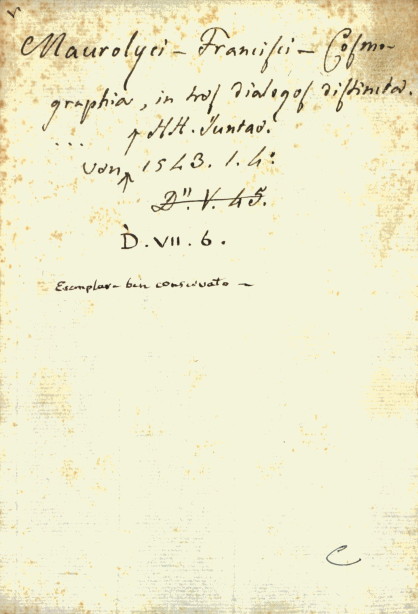 Maurolyci - Francisci - Cosmo-
graphia, in tres dialogos distincta.
... ↑ HH. Juntas.
Ven↑ 1543. 1. 4°.
D". V. 45.
D. VII. 6.
Esemplare ben conservato -
C